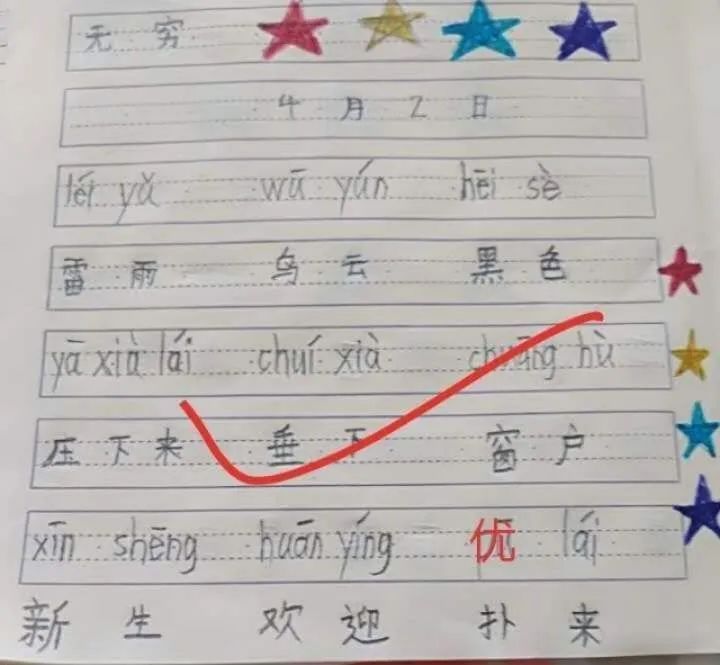 无穷
4月2日
léi yǔ wū yún hēi sè
雷雨 乌云 黑色
yā xià lái chuí xià chuāng hù
压下来 垂下 窗户
xīn shēng huān yíng 优 lái
新生 欢迎 扑来